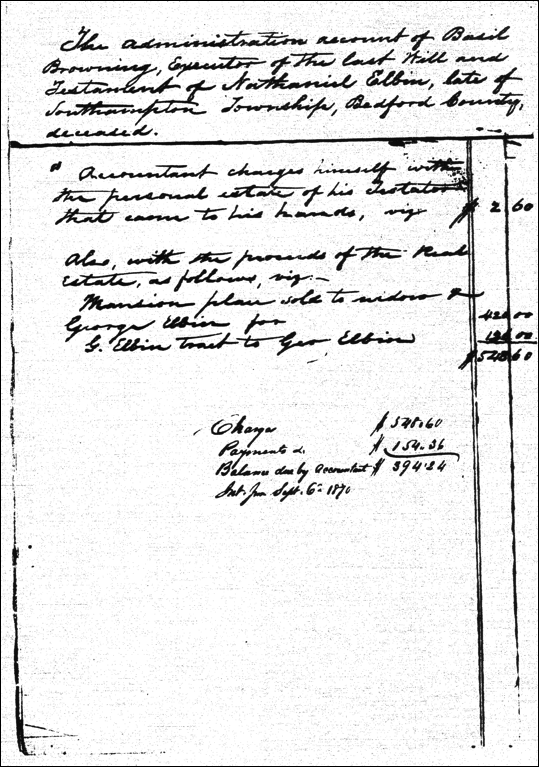 The administration account of Basil
Browning, Executor of the last Will and
Testament of Nathaniel Elbin, late of
Southampton Township, Bedford County,
deceased.
Accountant charges himself with
the personal estate of his testator
that came to his hands, viz $ 2 60
Also, with the proceeds of the Real
Estate, as follows, viz:-
Mansion place sold to widow &
George Elbin for 00
G. Elbin tract to Geo Elbin 00
$548 60
Charge $ 548.60
Payments $ 154.36
Balance due by Accountant $ 394.24
Int. from Sept. 6th 1870